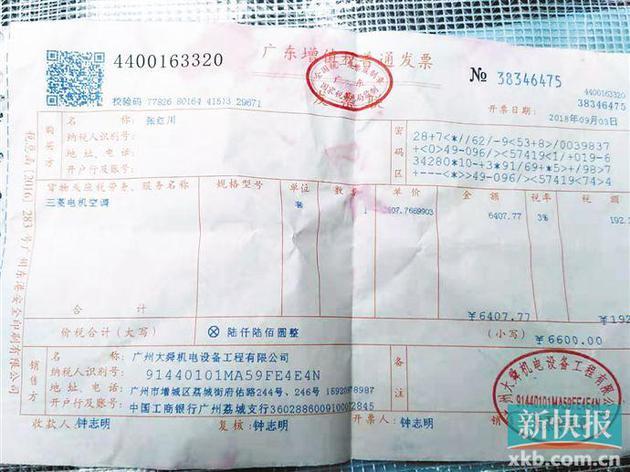 4400163320
广东增值税普通发票
№ 38346475
4400163320
38346475
校验码 77826 80164 41513 29671
开票日期: 2018年09月03日
购买方
名称: 张红川
纳税人识别号:
地址、电话:
开户行及账号:
密码区
28+7<*//62/-9<53+8>/0039837
+<0>49-096/<57419<1/+019-6
34280*10-+3*91/69+*5+/98>7
+----<*>>49-096/><57419<74>4
货物或应税劳务、服务名称 规格型号 单位 数量 单价 金额 税率 税额
三菱电机空调 1 6407.7669903 6407.77 3% 192.
合计 ¥6407.77 ¥192
价税合计(大写) ⊗ 陆仟陆佰圆整 (小写) ¥6600.00
销售方
名称: 广州大舜机电设备工程有限公司
纳税人识别号: 91440101MA59FE4E4N
地址、电话: 广州市增城区荔城街府佑路244号、246号
开户行及账号: 中国工商银行广州荔城支行
收款人: 钟志明 复核: 钟志明 开票人: 钟志明
91440101MA59FE4E4N
新快报
xkb.com.cn